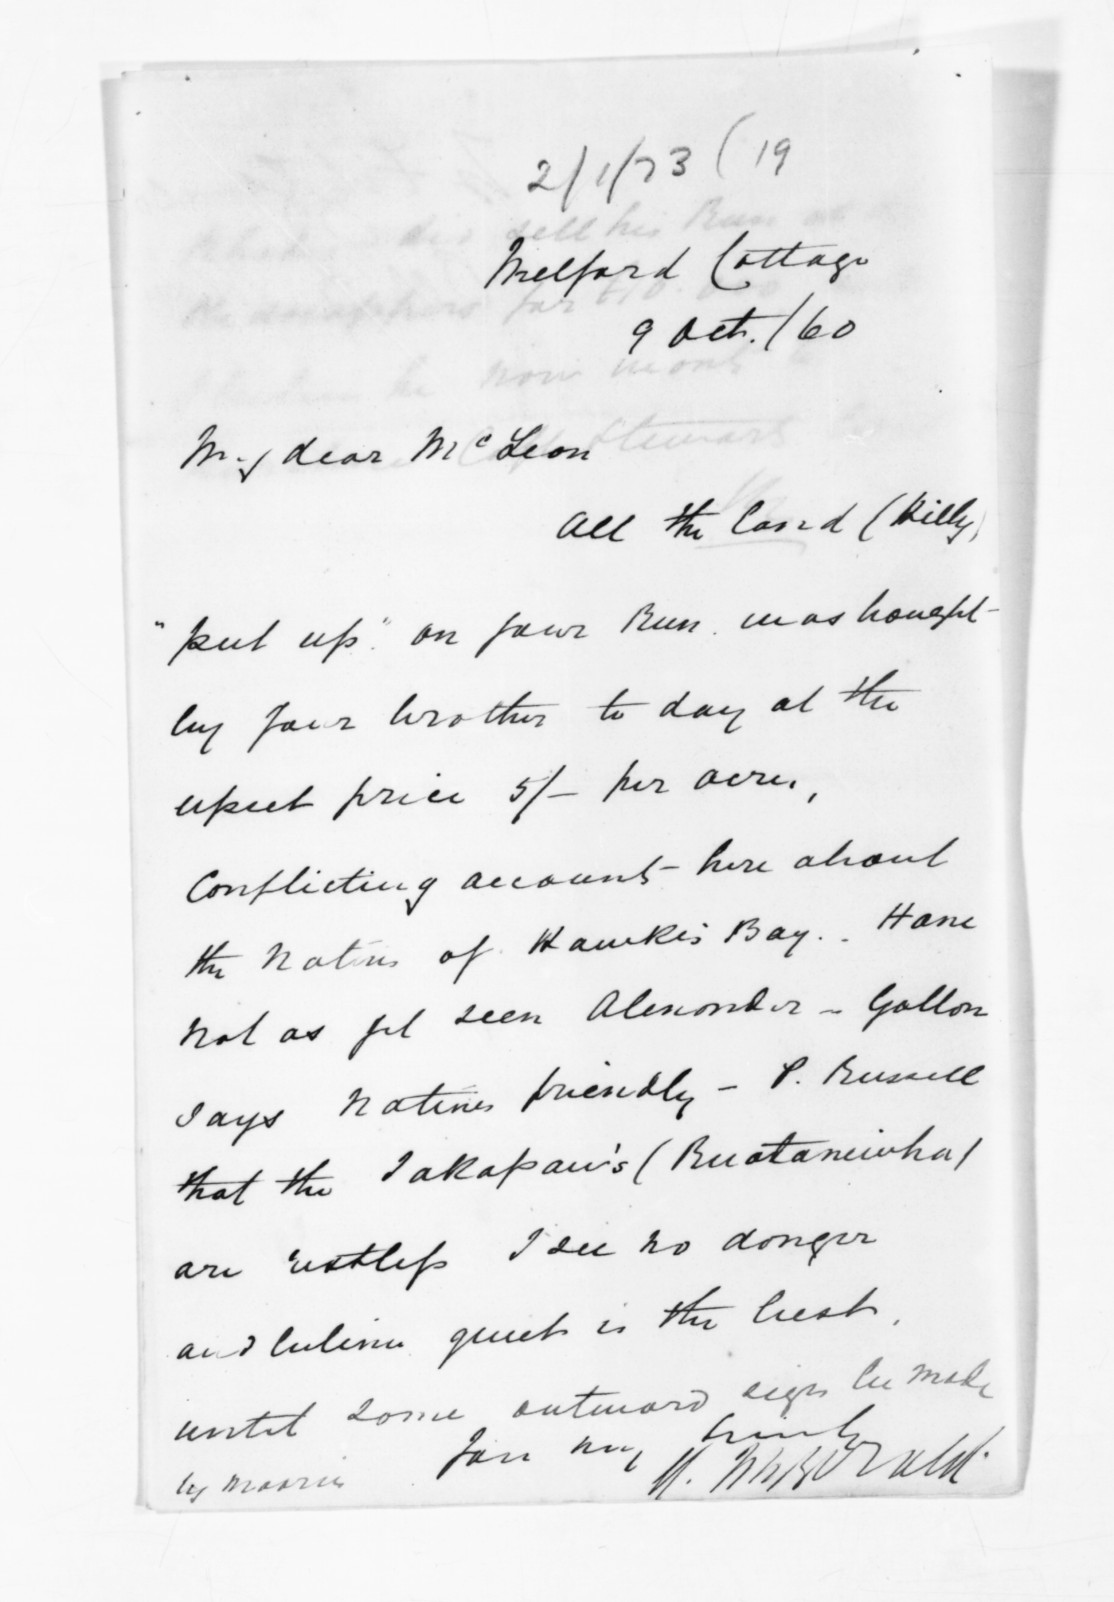 2/1/73 (19
Melford Cottage
9 Oct. /60
My dear McLean
All the land (Hilly)
"put up" on your Run was bought
by your brother to day at the
upset price 5/- per acre.,
Conflicting accounts here about
the Natives of Hawke's Bay. Have
not as yet seen Alexander - Gollan
says Natives friendly - P. Russell
that the Takapau's (Ruataniwha)
are restless I see no danger
and believe quiet is the best,
until some outward sign be made
by Maoris
Yours very truly